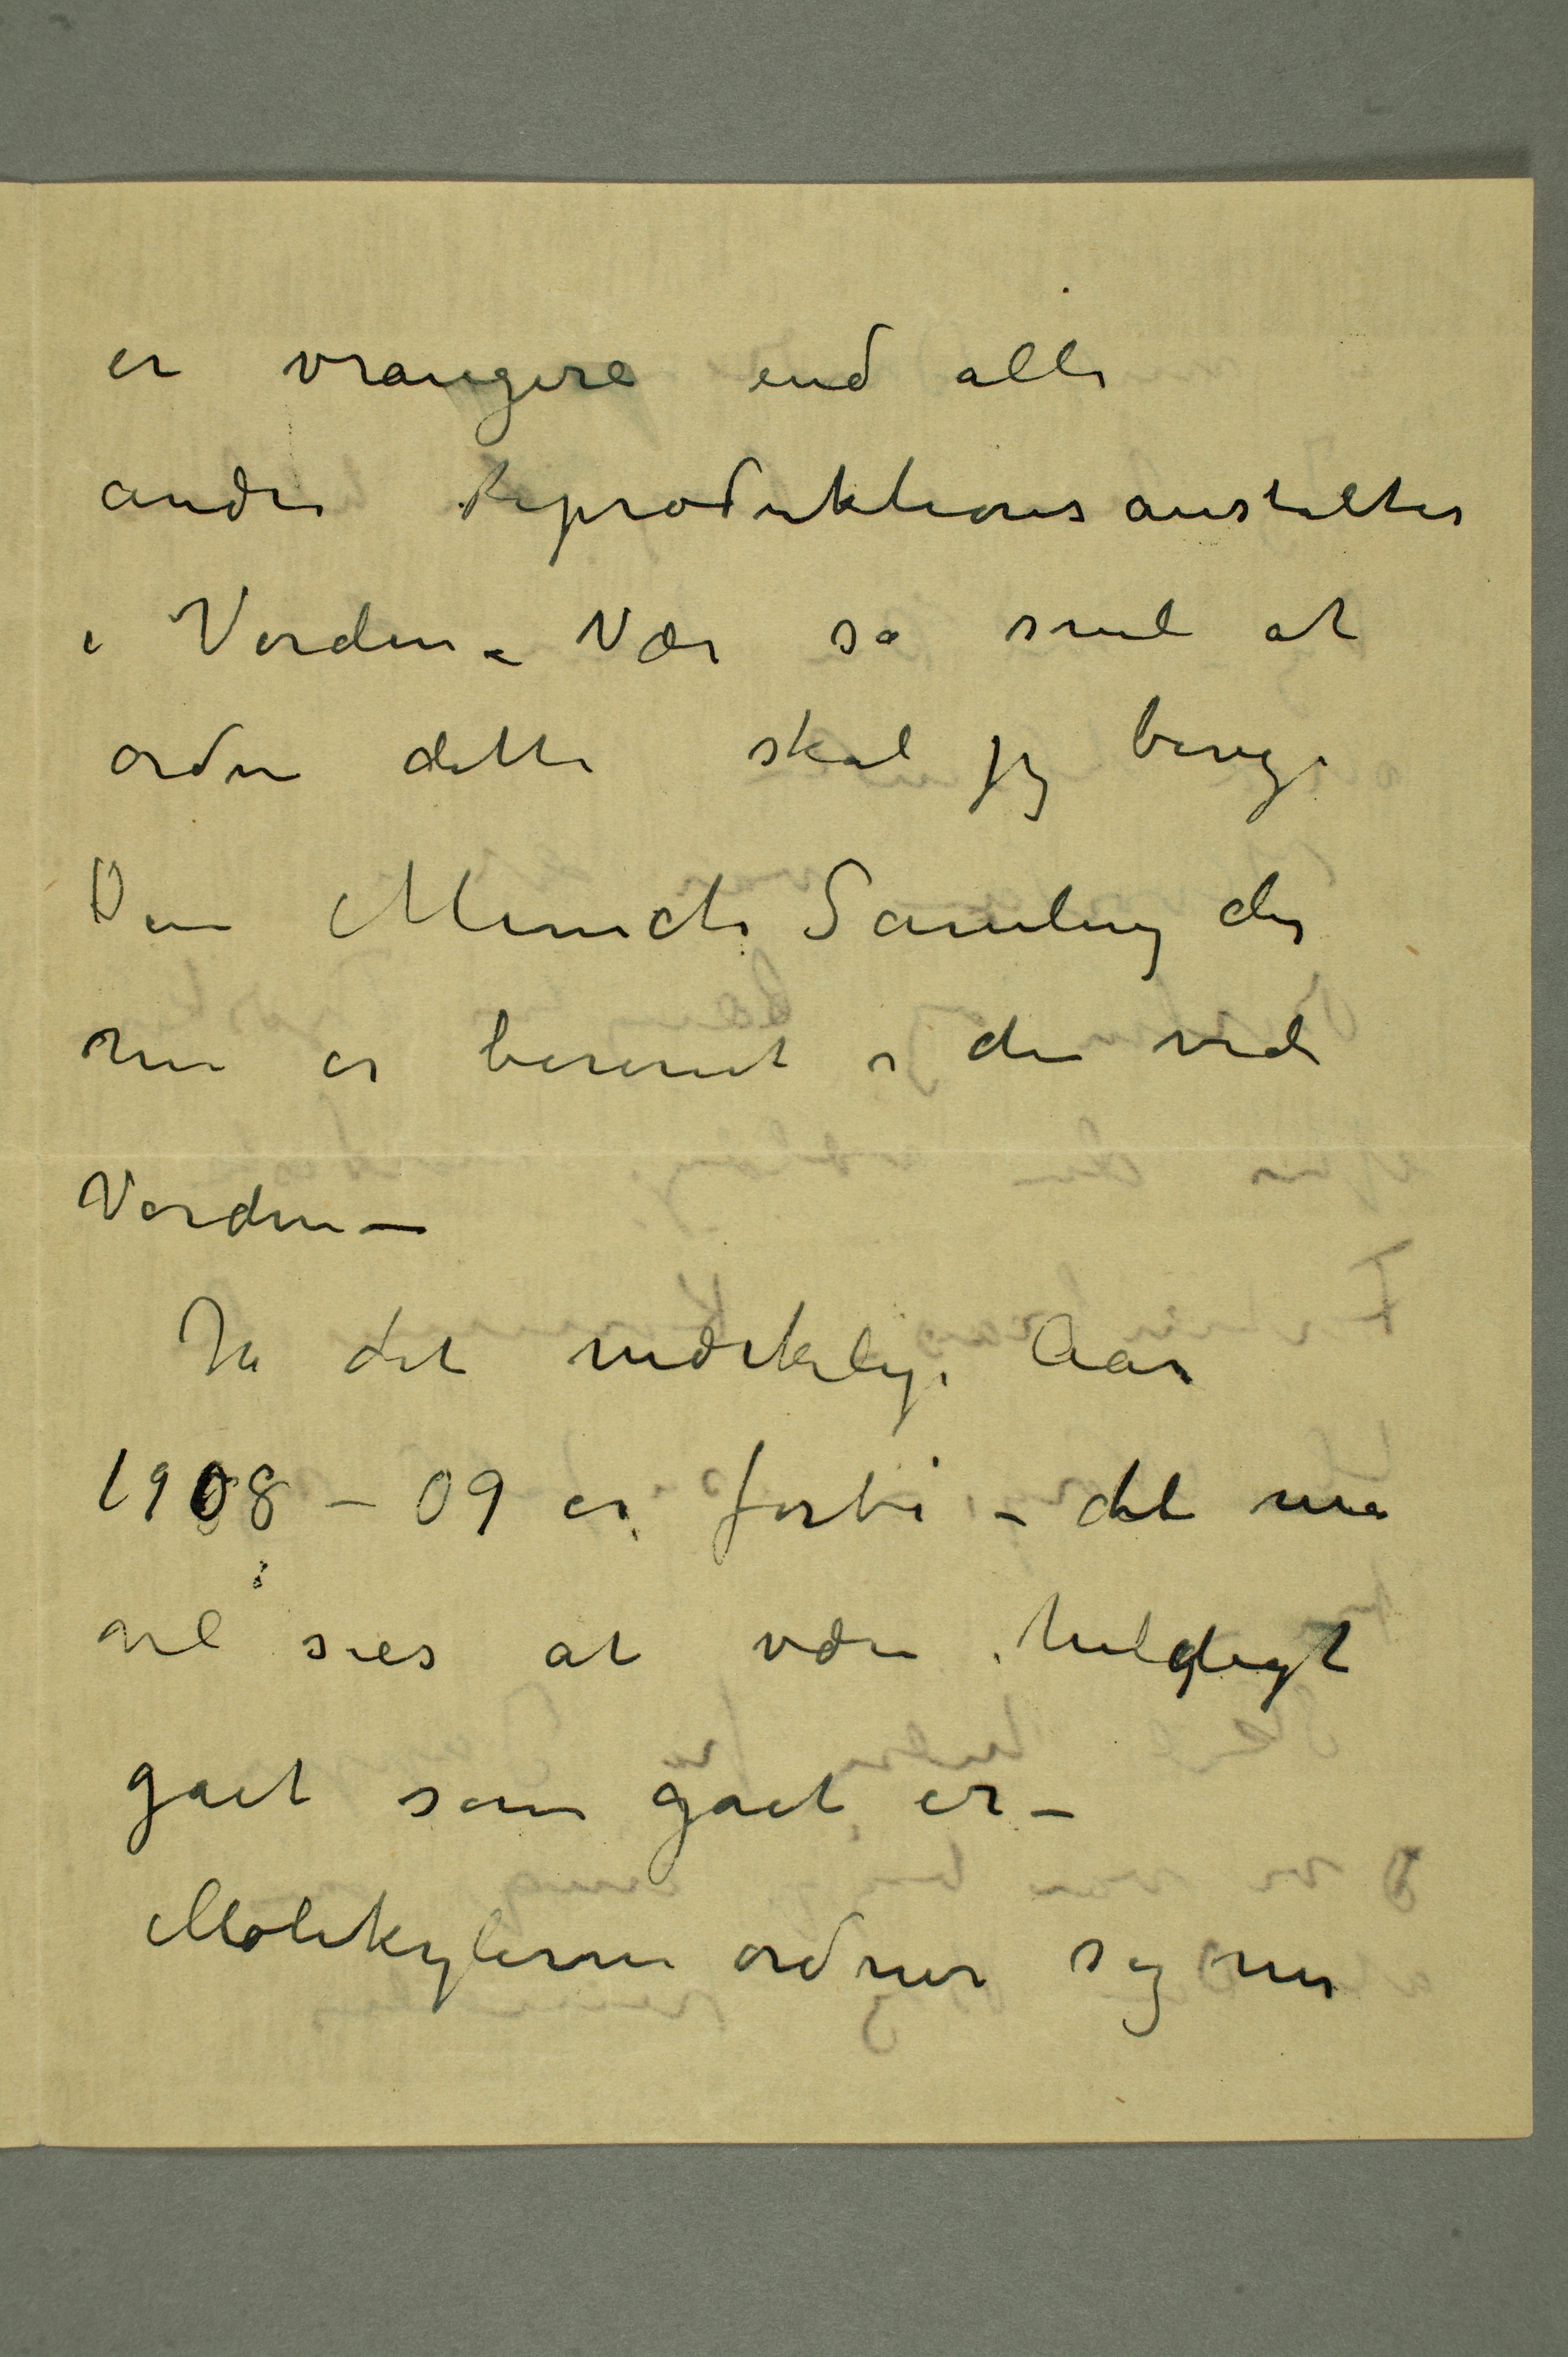 er vrangere end alle
andre Reproduktionsanstalter
i Verden. Vær så snil at
ordne dette skal jeg bevege
Den Munchske Samling der
nu er berømt i den vide
Verden –
Ja det mærkelige Aar
1908 – 09 er forbi – det må
vel sies at være heldigt
gået som gået er –
Molekylerne ordner sig nu